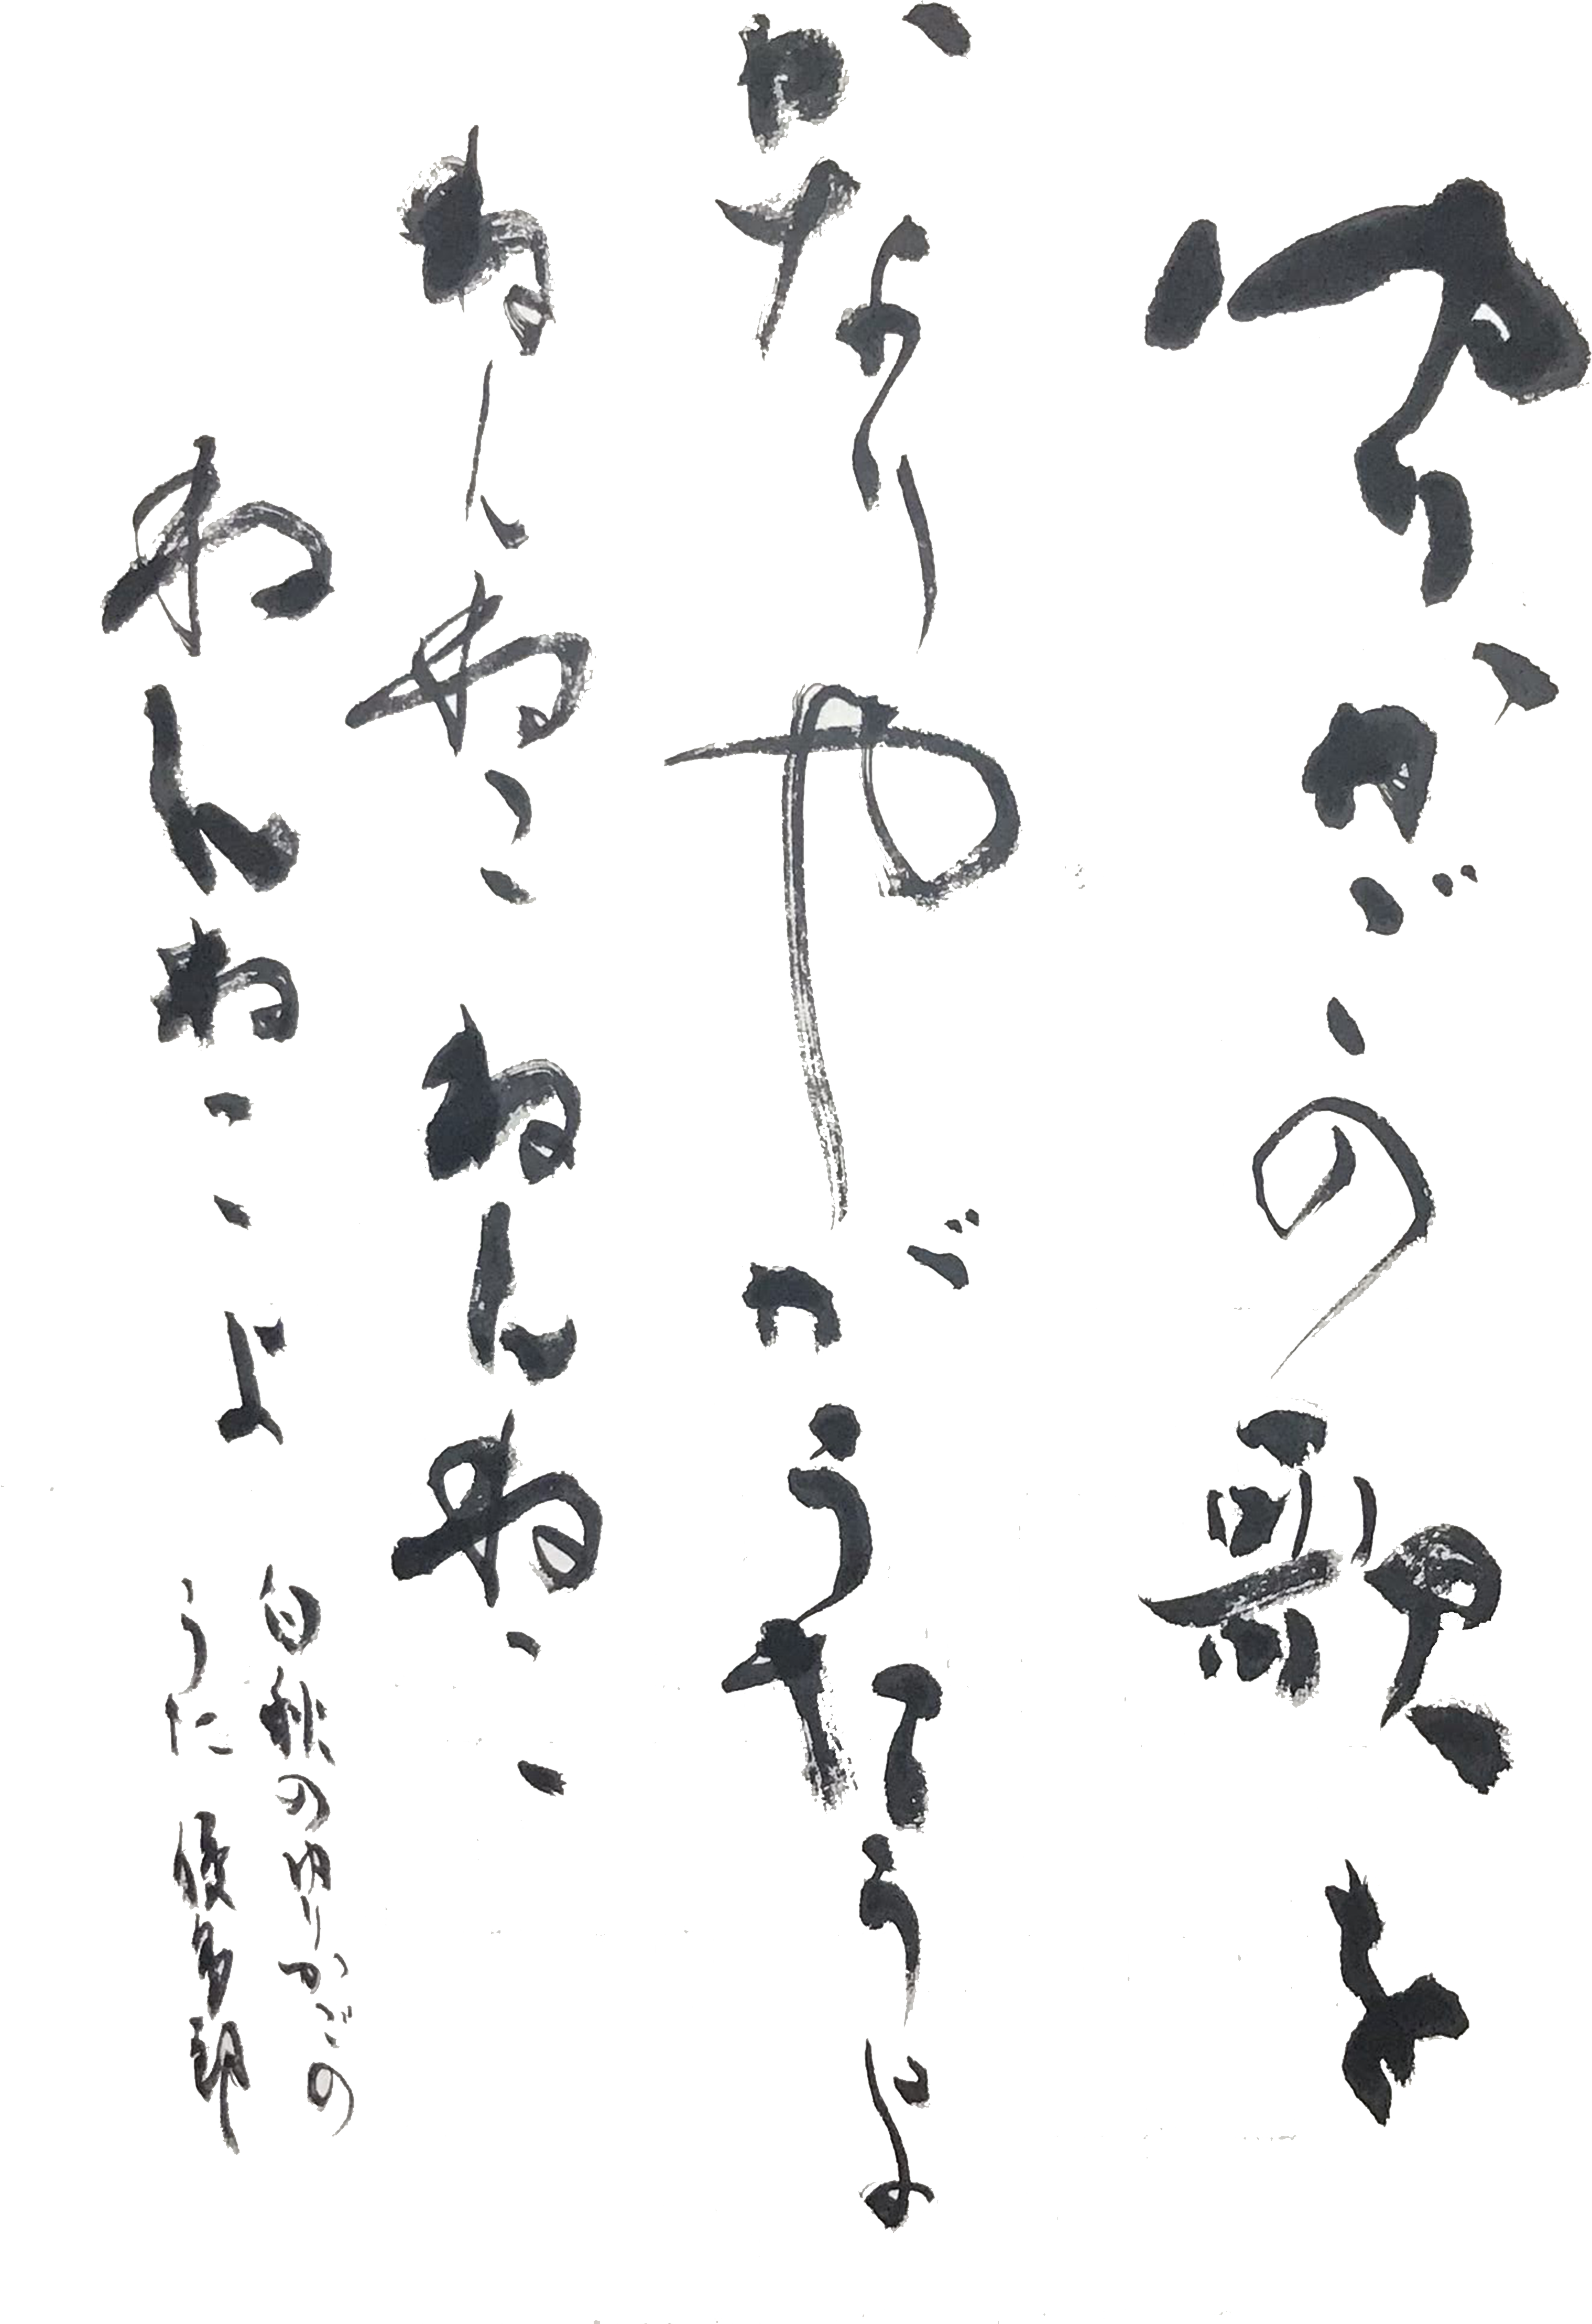 ゆりかごの歌を
かなりやがうたうよ
ねんねこ ねんねこ
ねんねこよ
白秋のゆりかごの
うた